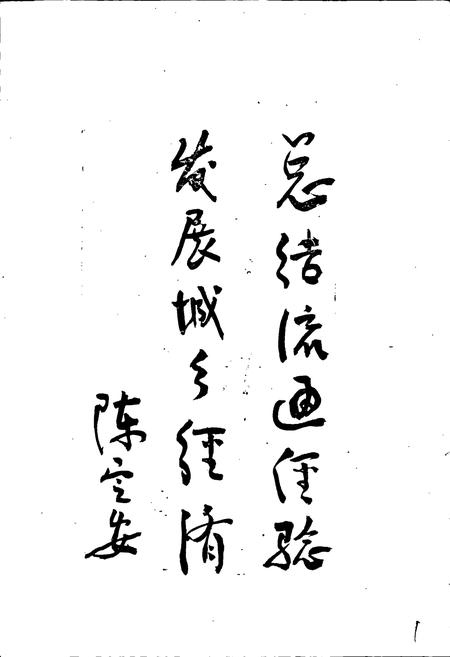 总结流通经验
发展城乡经济
陈定安
1